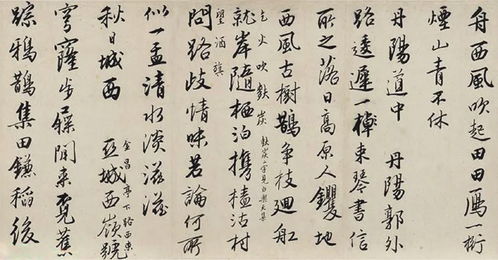 舟西風吹起田田雁一行
煙山青不休
丹陽道中 丹陽郭外
路逶遲一棹束琴書信
所之落日高原人钁地
西風古樹鵲爭枝廻船
乞火吹麩炭 麩炭二字見白樂天集
就岸隨栖泊攜榼沽村
望酒旗
問路歧情味若論何所
似一盂清水淡滋滋
金昌亭下路西東
秋日城西 亞城西嶺號
穹窿步屧閒來覓蕉
蹤鴉鵲集田鐮稻後